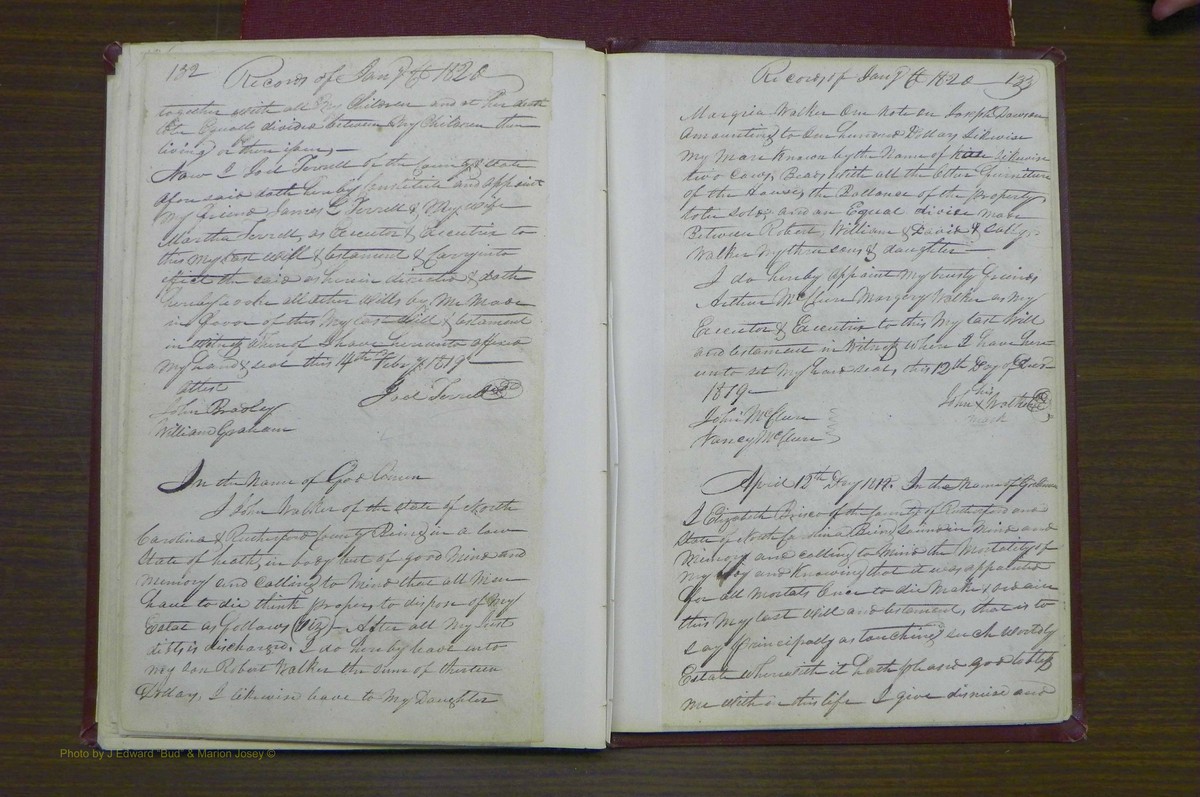 132 Record of Jany Ct 1820
together with all my Children and at her death
be Equally divided between my Children then
living or their issue,
Now I Joel Terrell of the County & State
afore said doth hereby Constitute and appoint
my friend James L Terrell & My wife
Martha Terrell, as Executor & Executrix to
this my last will & testament & Carry into
effect the said as herein directed & doth
all other Wills by Me Made
in favor of this My last Will & testament
in whereof I have hereunto affixed
my hand & seal this 14th Feby 1819
attest Joel Terrell Seal
John Bradley
William Graham
In the Name of God Amen
I John Walker of the State of North
Carolina & Rutherford County Being in a low
State of health, in body but of good Mind and
memory and Calling to Mind that all Men
have to die think proper, to dispose of My
Estate as follows (Viz) After all My Just
debts is discharged. I do hereby leave unto
my Son Robert Walker the Sum of thirteen
Dollars, I likewise leave to My Daughter
Record of Jany Ct 1820 133
Margria Walker One Note on Joseph Dawson
Amounting to One hundred Dollars Likewise
My Mare Known by the Name of Kate Likewise
two Cows, Beds, With all the Other furniture
of the House, the Ballance of the Property
to be sold and an Equal divide Made
Between Robert, William & David & Sally
Walker My three sons & daughter
I do hereby appoint My trusty friends
Arthur McClure Margery Walker as My
Executor & Executrix to this My last Will
and testament in Witness where I have here
unto set My hand & seal, this 12th Day of
1819 his
John X Walker Seal
mark
John McClure
Nancy McClure
April 12th Day 1818. In the Name of God Amen
I Elizabeth Brisco of the County of Rutherford and
State of North Carolina Being Sound in Mind and
Memory and calling to Mind the Mortality of
My Body and Knowing that it was appointed
for all Mortals Once to die Make, ordain
this My last Will and testament, that is to
say Principally as touching such Worldly
Estate Wherewith it hath pleased god to bless
me with in this life I give dismiss and
Photo by J Edward "Bud" & Marion Josey ©